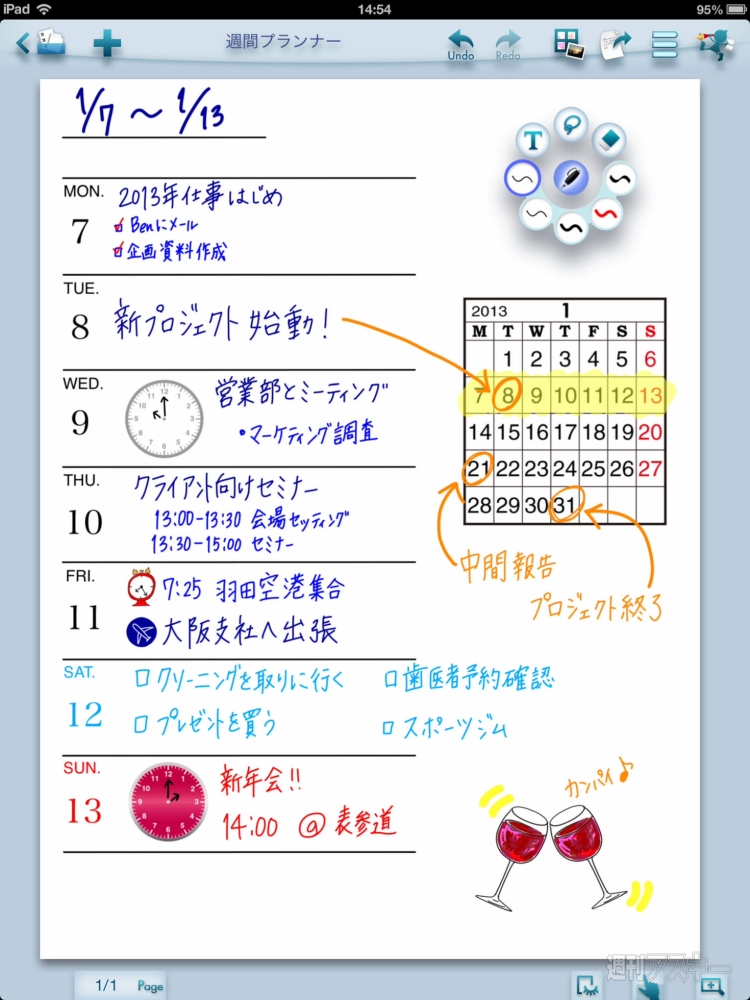 iPad 14:54 95%
週間プランナー
Undo Redo
1/7 〜 1/13
T
MON. 7
2013年仕事はじめ
Benにメール
企画資料作成
TUE. 8
新プロジェクト始動!
WED. 9
12 1 2 3 4 5 6 7 8 9 10 11
営業部とミーティング
・マーケティング調査
THU. 10
クライアント向けセミナー
13:00-13:30 会場セッティング
13:30-15:00 セミナー
FRI. 11
7:25 羽田空港集合
大阪支社へ出張
SAT. 12
クリーニングを取りに行く 歯医者予約確認
プレゼントを買う スポーツジム
SUN. 13
12 1 2 3 4 5 6 7 8 9 10 11
新年会!!
14:00 @表参道
2013 1
M T W T F S S
1 2 3 4 5 6
7 8 9 10 11 12 13
14 15 16 17 18 19 20
21 22 23 24 25 26 27
28 29 30 31
中間報告
プロジェクト終了
カンパイ♪
1/1 Page
週刊アスキー